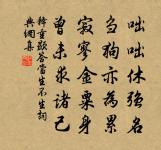 咄咄休強名
芻狗亦為累
寂寥金粟身
曾未求諸己
釋重顯答當生不生詞
與網集